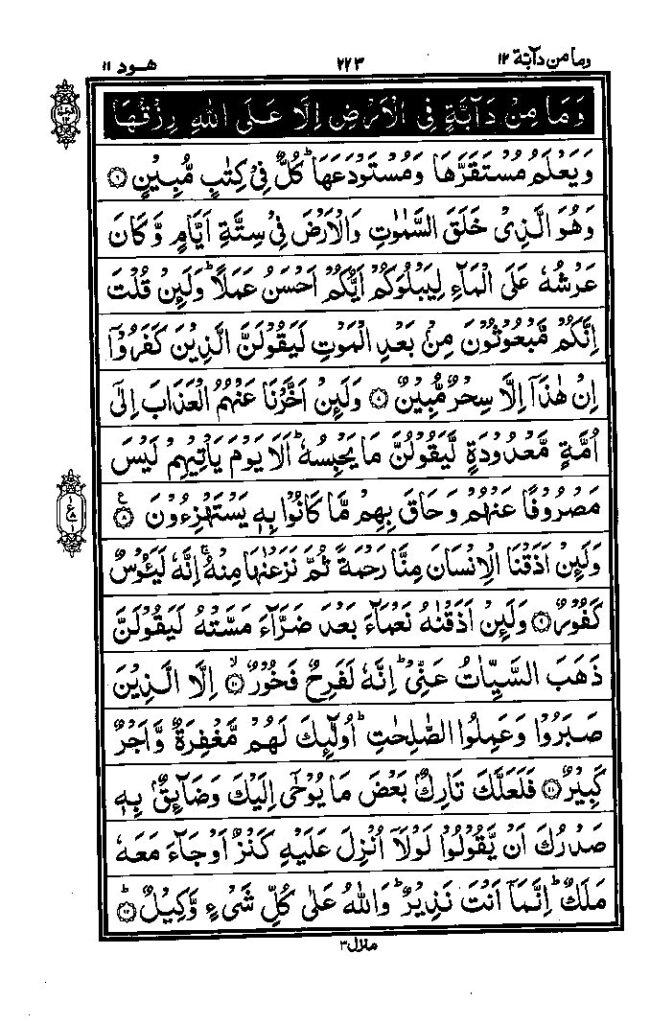 وما من دآبة ١٢
٢٢٣
هود ١١
وَمَا مِنْ دَآبَّةٍ فِی الْاَرْضِ اِلَّا عَلَی اللّٰهِ رِزْقُهَا
وَيَعْلَمُ مُسْتَقَرَّهَا وَمُسْتَوْدَعَهَا ؕ كُلٌّ فِیْ كِتٰبٍ مُّبِيْنٍ ۝۶
وَهُوَ الَّذِیْ خَلَقَ السَّمٰوٰتِ وَالْاَرْضَ فِیْ سِتَّةِ اَيَّامٍ وَّكَانَ
عَرْشُهٗ عَلَی الْمَآءِ لِيَبْلُوَكُمْ اَيُّكُمْ اَحْسَنُ عَمَلًا ؕ وَلَئِنْ قُلْتَ
اِنَّكُمْ مَّبْعُوْثُوْنَ مِنْۢ بَعْدِ الْمَوْتِ لَيَقُوْلَنَّ الَّذِيْنَ كَفَرُوْۤا
اِنْ هٰذَاۤ اِلَّا سِحْرٌ مُّبِيْنٌ ۝۷ وَلَئِنْ اَخَّرْنَا عَنْهُمُ الْعَذَابَ اِلٰۤی
اُمَّةٍ مَّعْدُوْدَةٍ لَّيَقُوْلُنَّ مَا يَحْبِسُهٗ ؕ اَلَا يَوْمَ يَاْتِيْهِمْ لَيْسَ
مَصْرُوْفًا عَنْهُمْ وَحَاقَ بِهِمْ مَّا كَانُوْا بِهٖ يَسْتَهْزِءُوْنَ ۝۸ ع
وَلَئِنْ اَذَقْنَا الْاِنْسَانَ مِنَّا رَحْمَةً ثُمَّ نَزَعْنٰهَا مِنْهُ ۚ اِنَّهٗ لَيَـُٔوْسٌ
كَفُوْرٌ ۝۹ وَلَئِنْ اَذَقْنٰهُ نَعْمَآءَ بَعْدَ ضَرَّآءَ مَسَّتْهُ لَيَقُوْلَنَّ
ذَهَبَ السَّيِّاٰتُ عَنِّیْ ؕ اِنَّهٗ لَفَرِحٌ فَخُوْرٌ ۝۱۰ۙ اِلَّا الَّذِيْنَ
صَبَرُوْا وَعَمِلُوا الصّٰلِحٰتِ ؕ اُولٰٓئِكَ لَهُمْ مَّغْفِرَةٌ وَّاَجْرٌ
كَبِيْرٌ ۝۱۱ فَلَعَلَّكَ تَارِكٌۢ بَعْضَ مَا يُوْحٰۤی اِلَيْكَ وَضَآئِقٌۢ بِهٖ
صَدْرُكَ اَنْ يَّقُوْلُوْا لَوْلَاۤ اُنْزِلَ عَلَيْهِ كَنْزٌ اَوْ جَآءَ مَعَهٗ
مَلَكٌ ؕ اِنَّمَاۤ اَنْتَ نَذِيْرٌ ؕ وَاللّٰهُ عَلٰی كُلِّ شَیْءٍ وَّكِيْلٌ ؕ۝۱۲